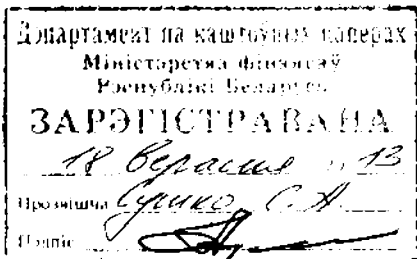 Дэпартамент па каштоўных паперах
Міністэрства фінансаў
Рэспублікі Беларусь
ЗАРЭГІСТРАВАНА
18 верасня 13
Прозвішча Сушко С.А
Подпіс